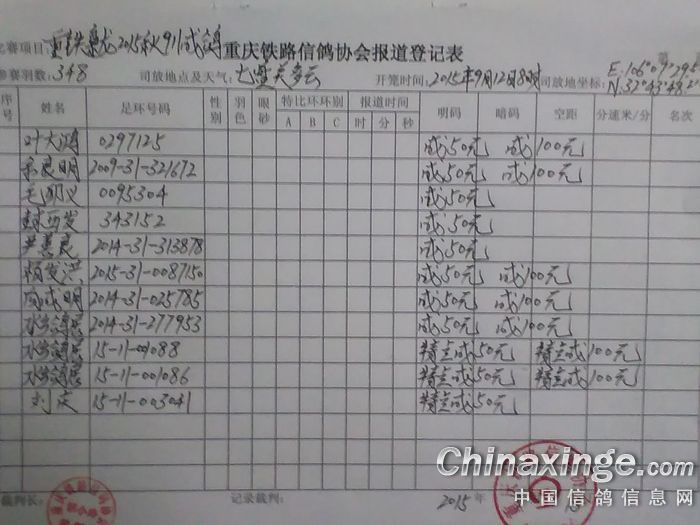 赛项目: 重铁 2015秋911成鸽 重庆铁路信鸽协会报道登记表
参赛羽数: 348 司放地点及天气: 多云 开笼时间: 2015年9月12日8时 司放地坐标: E:106°0
N:32°43
序号 姓名 足环号码 性别 羽色 眼砂 特比环环别 报道时间 明码 暗码 空距 分速米/分 名次
A B C 时 分 秒
叶大鸿 0297125 成50元 成100元
余良明 2009-31-321672 成50元 成100元
毛 义 0095304 成50元
封西发 343152 成50元
尹善良 2014-31-313878 成50元
杨发洪 2015-31-0087150 成50元 成100元
成明 2014-31-025785 成50元 成100元
水乡鸽 2014-31-277953 成50元 成100元
水乡鸽 15-11-001088 精点成50元 精点成100元
水乡鸽 15-11-001086 精点成50元 精点成100元
刘庆 15-11-003041 精点成50元
裁判长: 记录裁判: 2015年
Chinaxinge.com
中国信鸽信息网